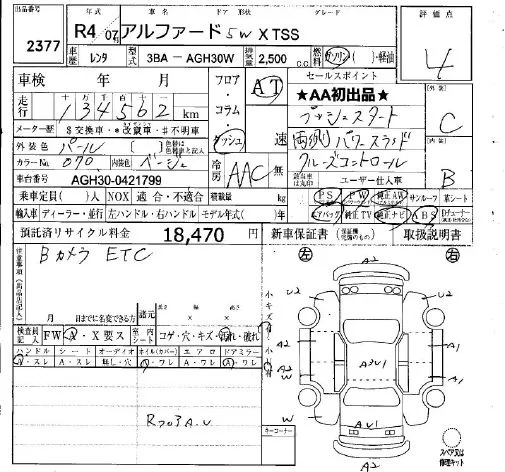 出品番号
2377
R4 07月
車名
アルファード 5W
ドア
形状
グレード
X TSS
評価点
4
車歴
レンタ
型式
3BA － AGH30W
排気量
2,500 C.C
燃料
ガソリン・( )・軽油
車検 年 月
フロア・コラム
ダッシュ
AT
速
セールスポイント
★AA初出品★
プッシュスタート
両側パワースライド
クルーズコントロール
外装
C
内装
B
走行
十万千百十一
134562 km
メーター歴 $交換車・*改竄車・#不明車
外装色 パール
( )
カラーNo. 070
内装色 ベージュ
車台番号 AGH30-0421799
冷房
AAC
無
ユーザー仕入車
乗車定員( )人
NOX 適合・不適合
積載量 kg
PS
PW
純正AW
サンルーフ
革シート
輸入車 ディーラー・並行 左ハンドル・右ハンドル モデル年式( )年
エアバック
純正TV
純正ナビ
ABS
預託済リサイクル料金 18,470 円
新車保証書
取扱説明書
注意事項(出品店記入)
Bカメラ ETC
月 日までに名変できる方
諸元
× ×
検査員記入
FW A・X要ス
室内シート
コゲ・穴・キズ・汚れ・破れ
ハンドル シート オーディオ ホイル(カバー) エアロ ドアミラー
A・スレ A・スレ 無し・穴 A・ワレ A・ワレ A・ワレ
R703A.U
小キズ有
小凹有
キーコーナー
左
右
A2
U2
U2
A2
A3U1
A1
A2
W
A1
W
AU1
A2
スペア又は
修理キット